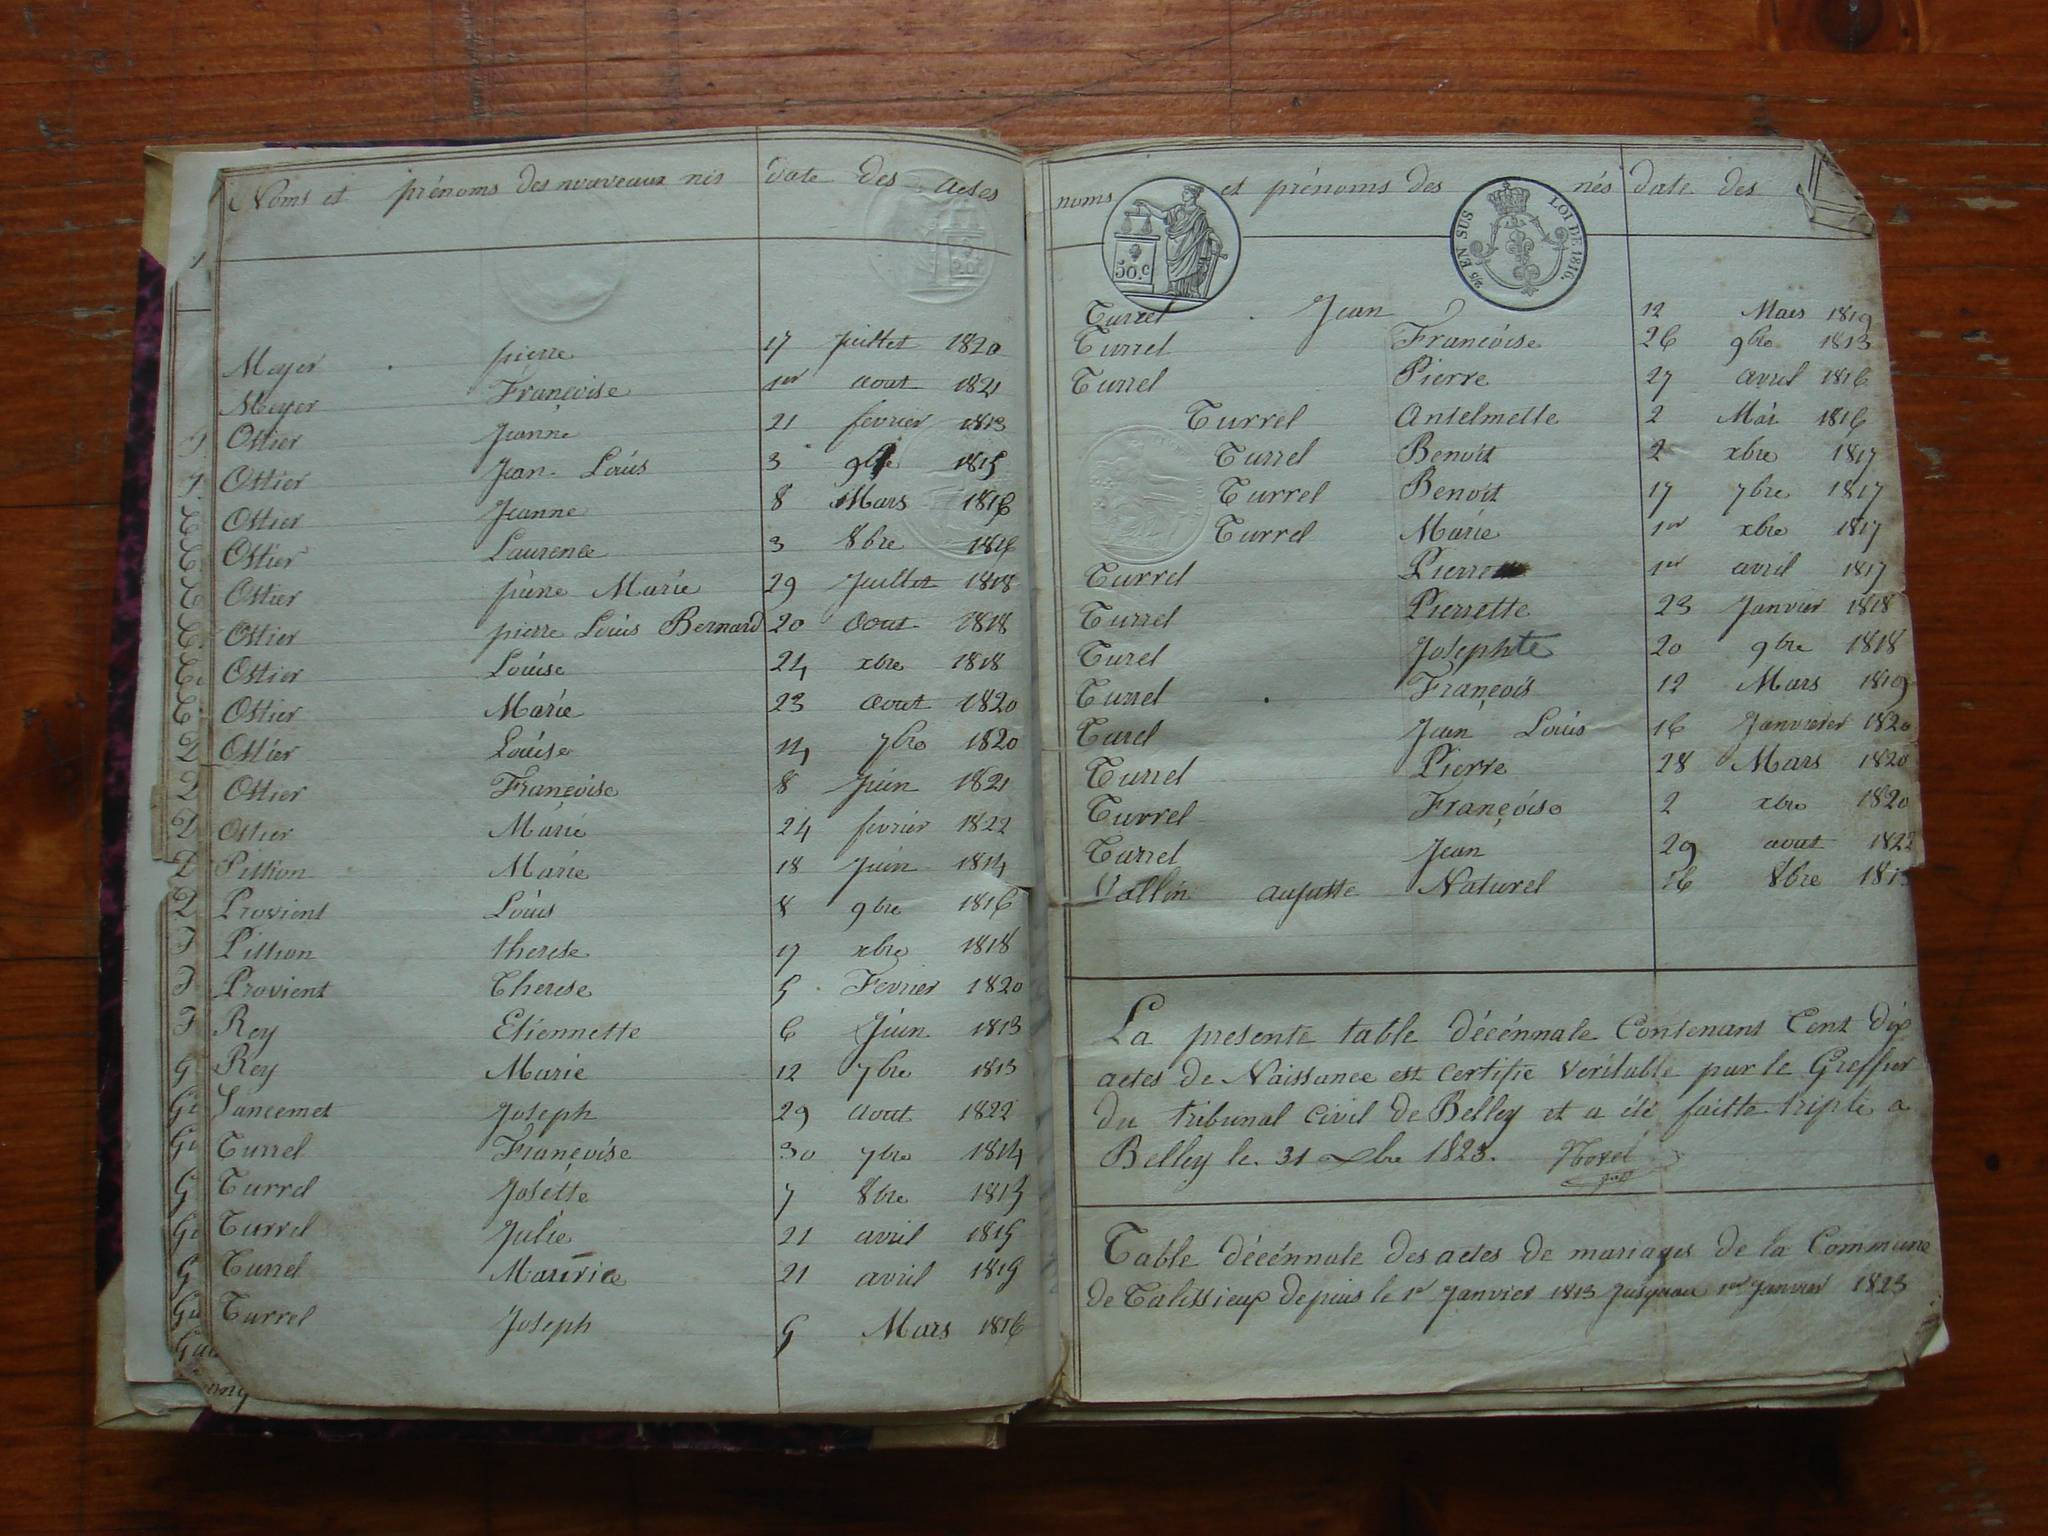 Noms et prénoms des nouveaux nés date des actes
Meyer pierre 17 Juillet 1820
Meyer Françoise 1er aout 1821
Ostier Jeanne 21 fevrier 1813
Ostier Jean Louis 3 9bre 1815
Ostier Jeanne 8 Mars 1816
Ostier Laurence 3 8bre 1816
Ostier pierre Marie 29 Juillet 1818
Ostier pierre Louis Bernard 20 aout 1818
Ostier Louise 24 xbre 1818
Ostier Marie 23 aout 1820
Ostier Louise 14 7bre 1820
Ostier Françoise 8 Juin 1821
Ostier Marie 24 fevrier 1822
Pittion Marie 18 Juin 1814
Provient Louis 8 9bre 1816
Pittion therese 17 xbre 1818
Provient Therese 5 Fevrier 1820
Rey Etiennette 6 Juin 1813
Rey Marie 12 7bre 1815
Lancemet Joseph 29 aout 1822
Turrel Françoise 30 7bre 1814
Turrel Josette 7 8bre 1815
Turrel Julie 21 avril 1815
Turrel 21 avril 1815
Turrel Joseph 5 Mars 1816
noms et prénoms des nés date des
50.c
EN SUS LOI DE 1816.
Turrel Jean 12 Mars 1819
Turrel Françoise 26 9bre 1813
Turrel Pierre 27 avril 1816
Turrel Antelmette 2 Mai 1816
Turrel Benoit 2 xbre 1817
Turrel Benoit 17 7bre 1817
Turrel Marie 1er xbre 1817
Turrel Pierre 1er avril 1817
Turrel Pierrette 23 Janvier 1818
Turel Josephte 20 9bre 1818
Turrel François 12 Mars 1819
Turel Jean Louis 16 Janvier 1820
Turrel Pierre 28 Mars 1820
Turrel Françoise 2 xbre 1820
Turrel Jean 29 aout 1822
Vallin Naturel 16 8bre
La presente table décénnale Contenant Cent dix
actes de Naissance est certifie veritable par le Greffier
du tribunal civil de Belley et a été faitte triple a
Belley le 31 xbre 1823.
Table décénnale des actes de mariages de la Commune
de Talissieux depuis le 1er Janvier 1813 Jusquau 1er Janvier 1823